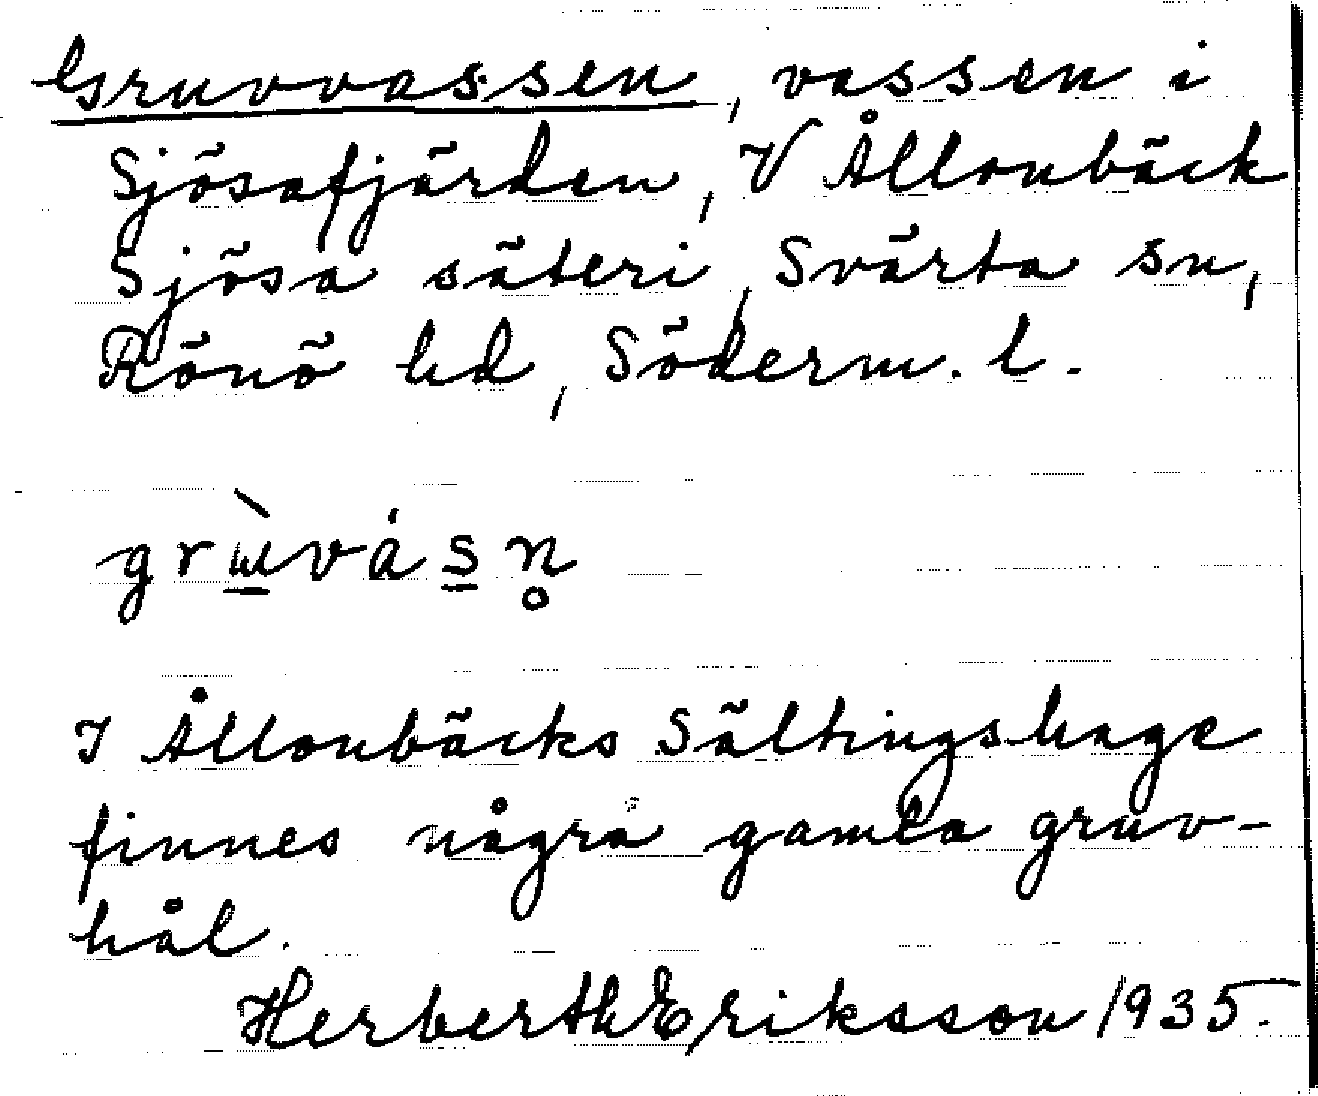 Gruvvassen, vassen i
Sjösafjärden, V Ållonbäck
Sjösa säteri, Svärta sn,
Rönö hd, Söderm. l.
grùvásn̥
I Ållonbäcks Sältingshage
finnes några gamla gruv-
hål.
Herberth Eriksson 1935.